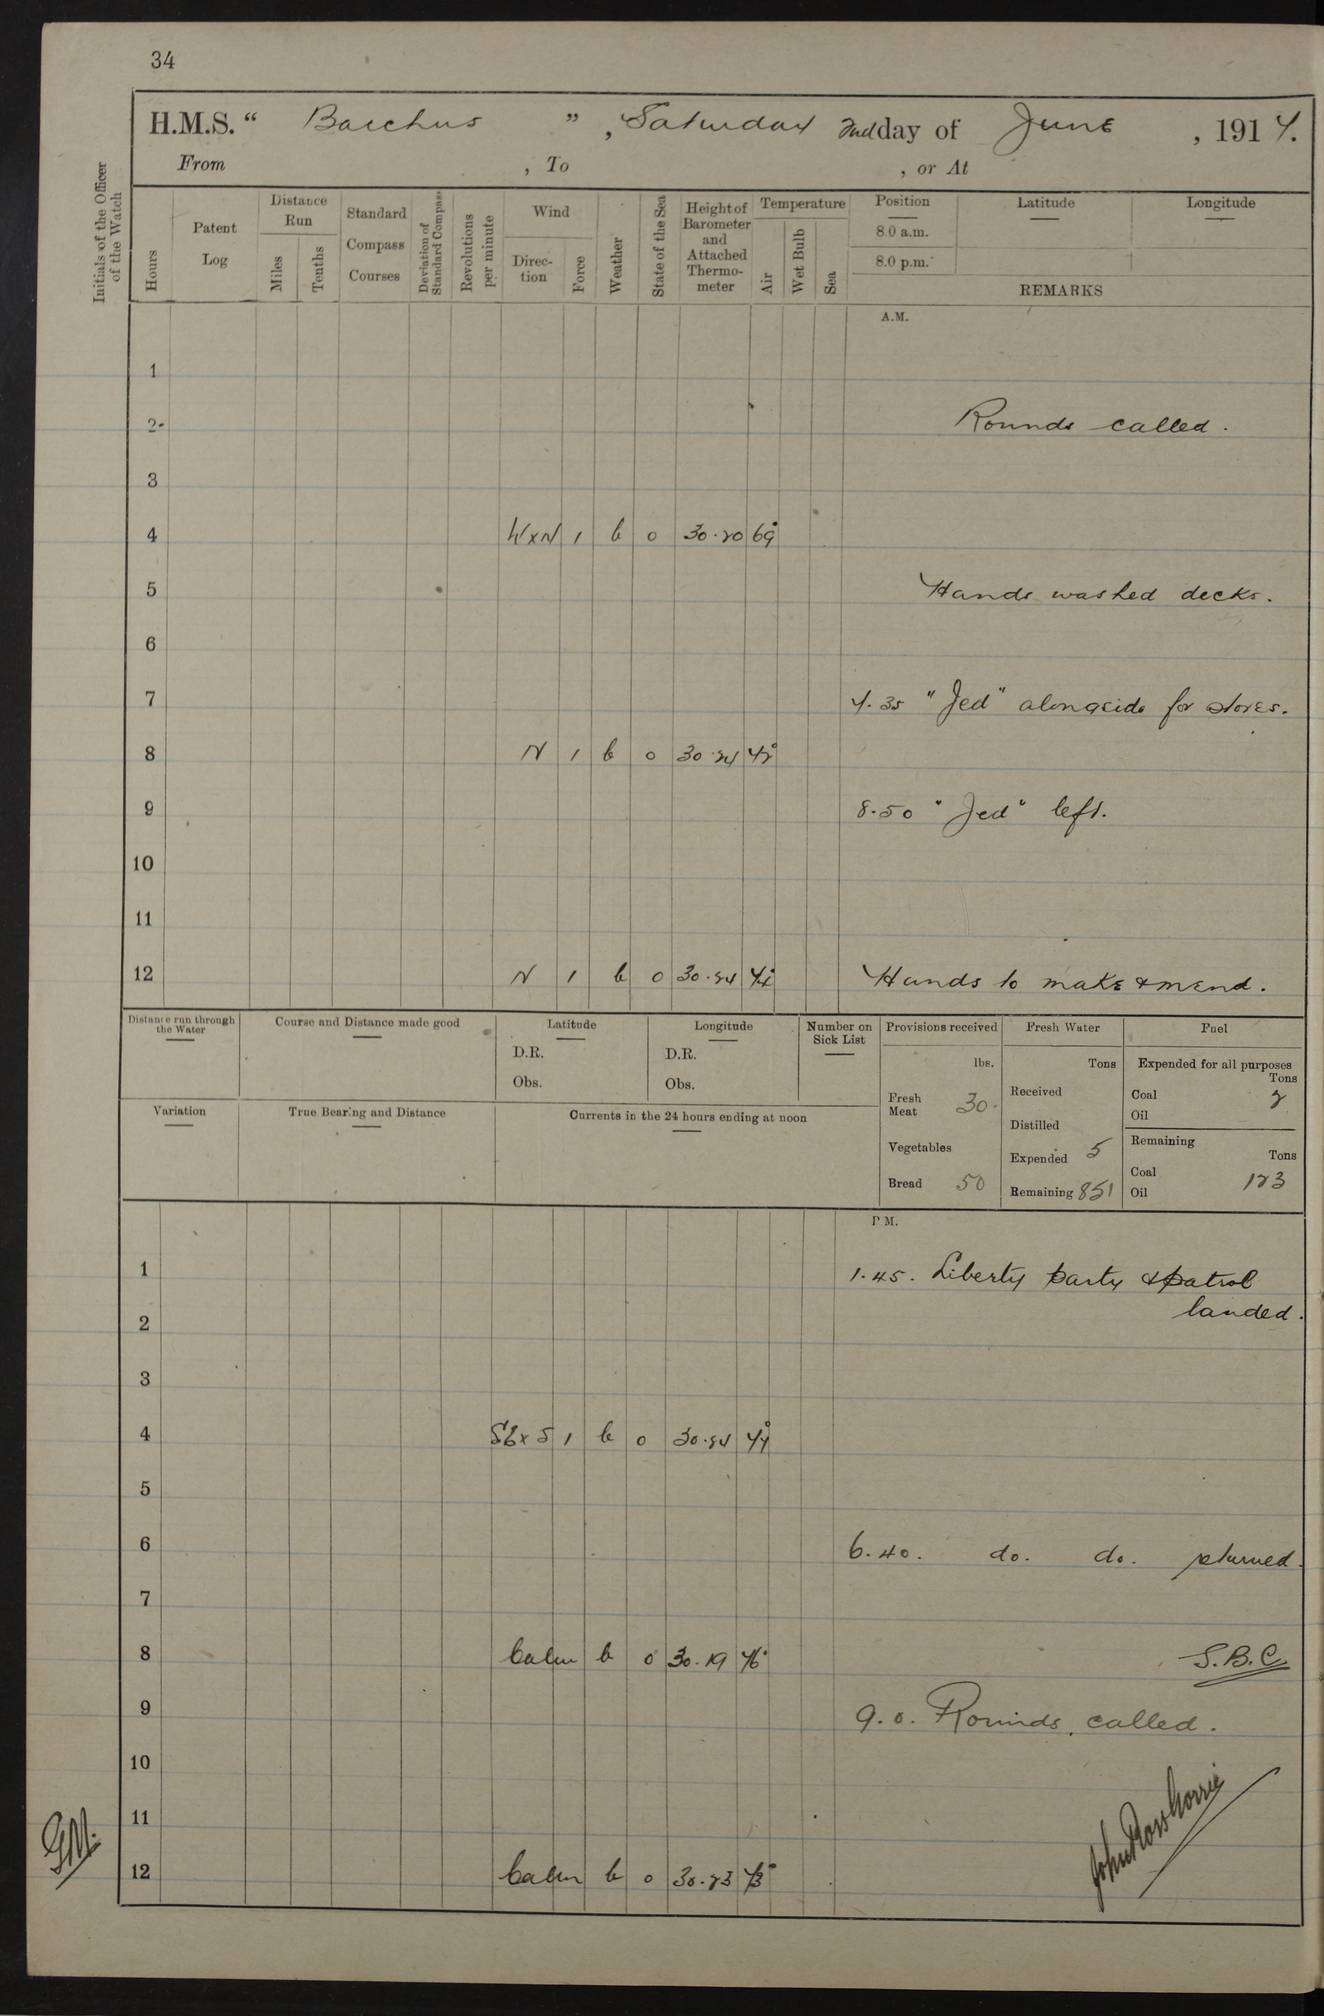 34
H.M.S. " Bacchus ", Saturday 2nd day of June, 1917.
From , To , or At
Initials of the Officer of the Watch
Hours
Patent Log
Distance Run
Miles
Tenths
Standard Compass Courses
Deviation of Standard Compass
Revolutions per minute
Wind
Direction
Force
Weather
State of the Sea
Height of Barometer and Attached Thermometer
Temperature
Air
Wet Bulb
Sea
Position Latitude Longitude
8.0 a.m.
8.0 p.m.
REMARKS
A.M.
1
2 Rounds called.
3
4 W×N 1 b 0 30.20 69°
5 Hands washed decks.
6
7 7.35 "Jed" alongside for stores.
8 N 1 b 0 30.24 72°
9 8.50 "Jed" left.
10
11
12 N 1 b 0 30.24 74° Hands to make & mend.
Distance run through the Water
Course and Distance made good
Latitude
D.R.
Obs.
Longitude
D.R.
Obs.
Number on Sick List
Provisions received
lbs.
Fresh Meat 30.
Vegetables
Bread 50
Fresh Water
Tons
Received
Distilled
Expended 5
Remaining 851
Fuel
Expended for all purposes
Tons
Coal 2
Oil
Remaining
Tons
Coal 123
Oil
Variation
True Bearing and Distance
Currents in the 24 hours ending at noon
P M.
1 1.45. Liberty party & patrol
landed.
2
3
4 SE×S 1 b 0 30.24 77°
5
6 6.40. do. do. returned.
7
8 Calm b 0 30.19 76° S.B.C.
9 9.0. Rounds called.
10
11
12 Calm b 0 30.23 73°
G.M.